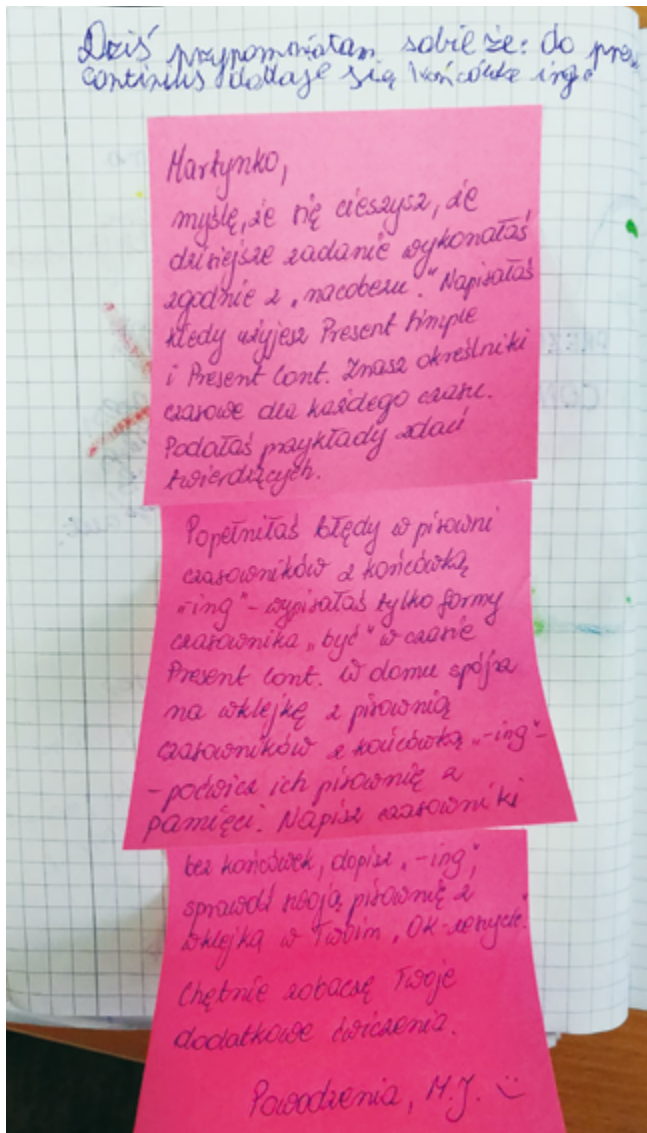 Dziś przypomniałam sobie że: do pre
continius dodaje się końcówkę ing.
Martynko,
myślę, że się cieszysz, że
dzisiejsze zadanie wykonałaś
zgodnie z „nacobezu." Napisałaś
kiedy użyjesz Present Simple
i Present Cont. Znasz określniki
czasowe dla każdego czasu.
Podałaś przykłady zdań
twierdzących.
Popełniłaś błędy w pisowni
czasowników z końcówką
„-ing" - wypisałaś tylko formy
czasownika „być" w czasie
Present Cont. W domu spójrz
na wklejkę z pisownią
czasowników z końcówką „-ing" -
- poćwicz ich pisownię z
pamięci. Napisz czasowniki
bez końcówek, dopisz „-ing",
sprawdź swoją pisownię z
wklejką w Twoim „OK-zeszycie".
Chętnie zobaczę Twoje
dodatkowe ćwiczenia.
Powodzenia, M.J.